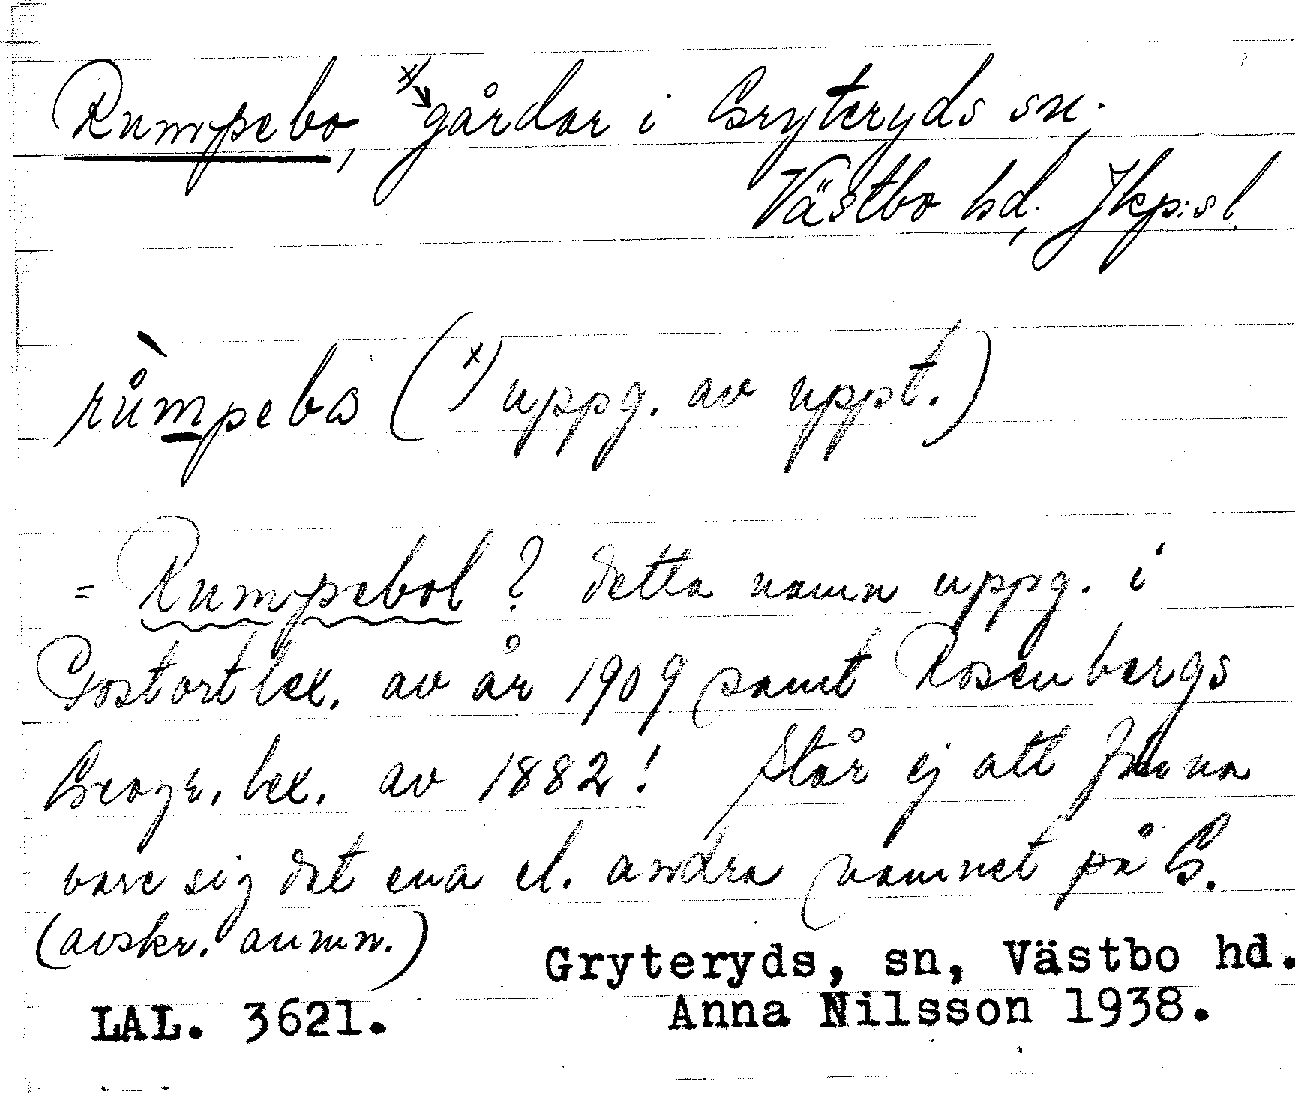 Rumpebo, x) gårdar i Gryteryds sn.
Västbo hd, Jkp:s l.
rùmpebo (x) uppg. av uppt.)
= Rumpebol? detta namn uppg. i
Postortlex. av år 1909 samt Rosenbergs
Geogr. lex. av 1882! Står ej att finna
vare sig det ena el. andra namnet på G.
(avskr. anmn.)
Gryteryds, sn, Västbo hd.
LAL. 3621.
Anna Nilsson 1938.